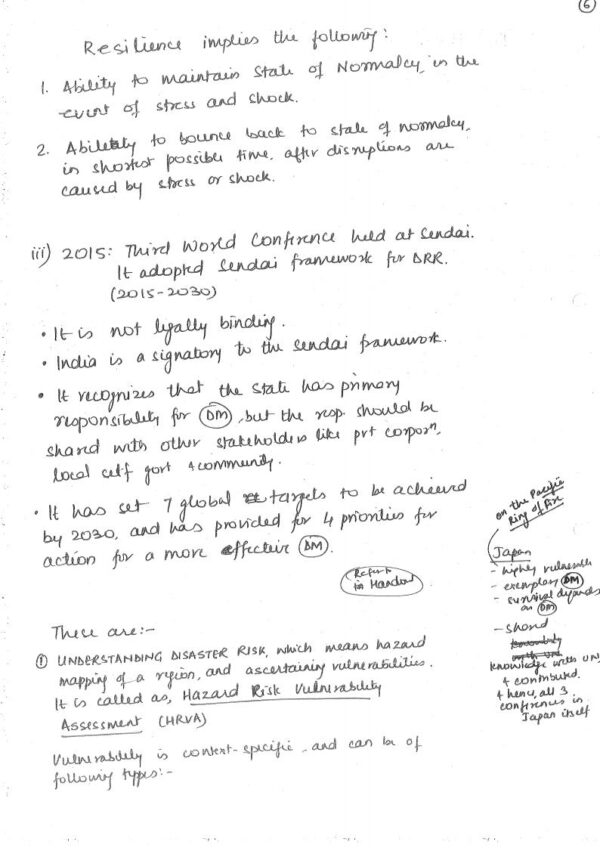 6
Resilience implies the following:
1. Ability to maintain state of Normalcy, in the
event of stress and shock.
2. Ability to bounce back to state of normalcy,
in shortest possible time, after disruptions are
caused by stress or shock.
iii) 2015: Third World Conference held at Sendai.
It adopted Sendai framework for DRR.
(2015-2030)
• It is not legally binding.
• India is a signatory to the Sendai framework.
• It recognizes that the State has primary
responsibility for DM, but the resp. should be
shared with other stakeholders like pvt corporn,
local self govt & community.
• It has set 7 global targets to be achieved
by 2030, and has provided for 4 priorities for
action for a more effective DM.
Refer to
in Handout
on the Pacific
Ring of Fire
Japan
- highly vulnerable
- exemplary DM
- survival depends
on DM
- shared
knowledge with UN,
& contributed.
& hence, all 3
conferences in
Japan itself
These are:-
① UNDERSTANDING DISASTER RISK, which means hazard
mapping of a region, and ascertaining vulnerabilities.
It is called as, Hazard Risk Vulnerability
Assessment (HRVA)
Vulnerability is context-specific, and can be of
following types:-